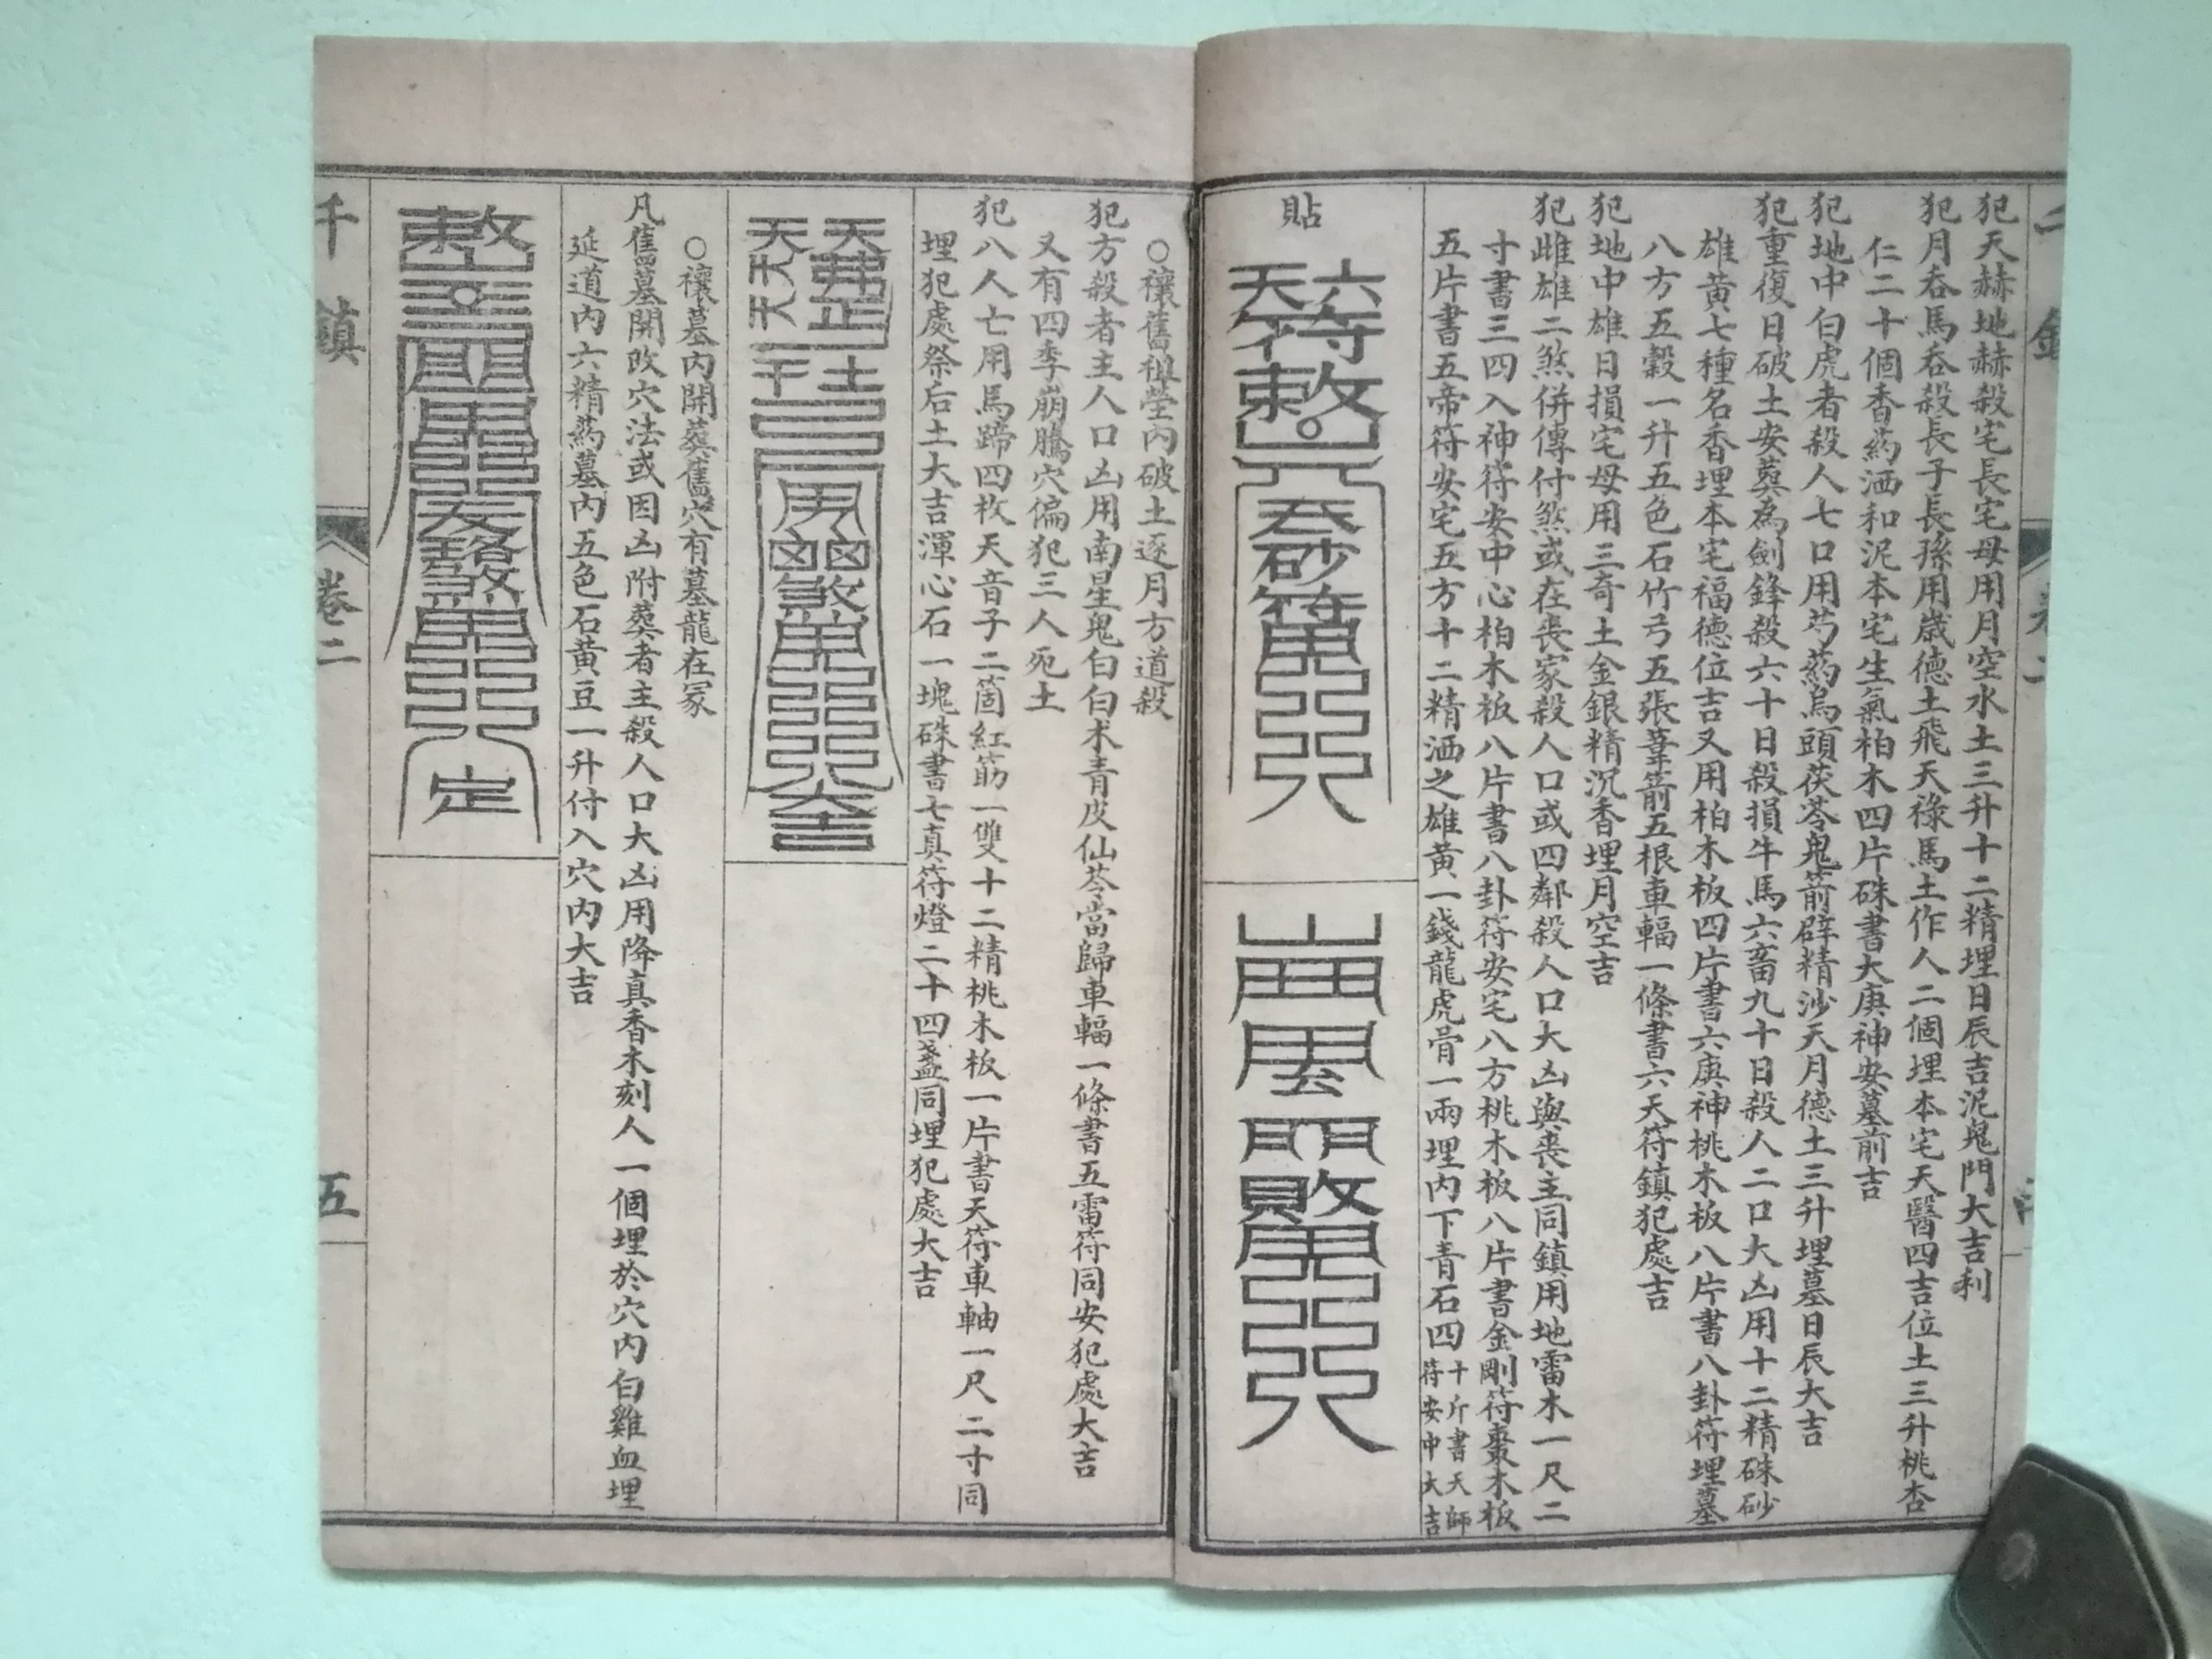 犯天赫地赫殺宅長宅母用月空水土三升十二精埋日辰吉泥鬼門大吉利
犯月吞馬吞殺長子長孫用歲德土飛天祿馬土作人二個埋本宅天醫四吉位土三升桃杏
仁二十個香药洒和泥本宅生氣柏木四片硃書大庚神安墓前吉
犯地中白虎者殺人七口用芍药烏頭茯苓鬼箭辟精沙天月德土三升埋墓日辰大吉
犯重復日破土安葬為劍鋒殺六十日殺損牛馬六畜九十日殺人二口大凶用十二精硃砂
雄黃七種名香埋本宅福德位吉又用柏木板四片書六庚神桃木板八片書八卦符埋墓
八方五穀一升五色石竹弓五張葦箭五根車輻一條書六天符鎮犯處吉
犯地中雄日損宅母用三奇土金銀精沉香埋月空吉
犯雌雄二煞併傳付煞或在喪家殺人口或四鄰殺人口大凶與喪主同鎮用地雷木一尺二
寸書三四入神符安中心柏木板八片書八卦符安宅八方桃木板八片書金剛符棗木板
五片書五帝符安宅五方十二精洒之雄黃一錢龍虎骨一兩埋內下青石四十斤書天師
符安中大吉
貼
○禳舊祖塋內破土逐月方道殺
犯方殺者主人口凶用南星鬼臼白朮青皮仙苓當歸車輻一條書五雷符同安犯處大吉
又有四季崩騰穴偏犯三人死土
犯八人亡用馬蹄四枚天音子二箇紅筯一雙十二精桃木板一片書天符車軸一尺二寸同
埋犯處祭后土大吉渾心石一塊硃書七真符燈二十四盞同埋犯處大吉
○禳墓內開葬舊穴有墓龍在冢
凡舊墓開改穴法或因凶附葬者主殺人口大凶用降真香木刻人一個埋於穴內白雞血埋
延道內六精药墓內五色石黃豆一升付入穴內大吉
定
千鎮
卷二
五